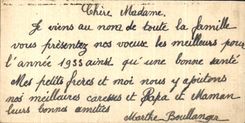 Chère Madame,
Je viens au nom de toute la famille
vous présentez nos voeux les meilleurs pour
l'année 1955 ainsi qu'une bonne santé
Mes petits frères et moi nous y ajoutons
nos meilleures caresses et Papa et Maman
leurs bonnes amitiés
Marthe Boullanger